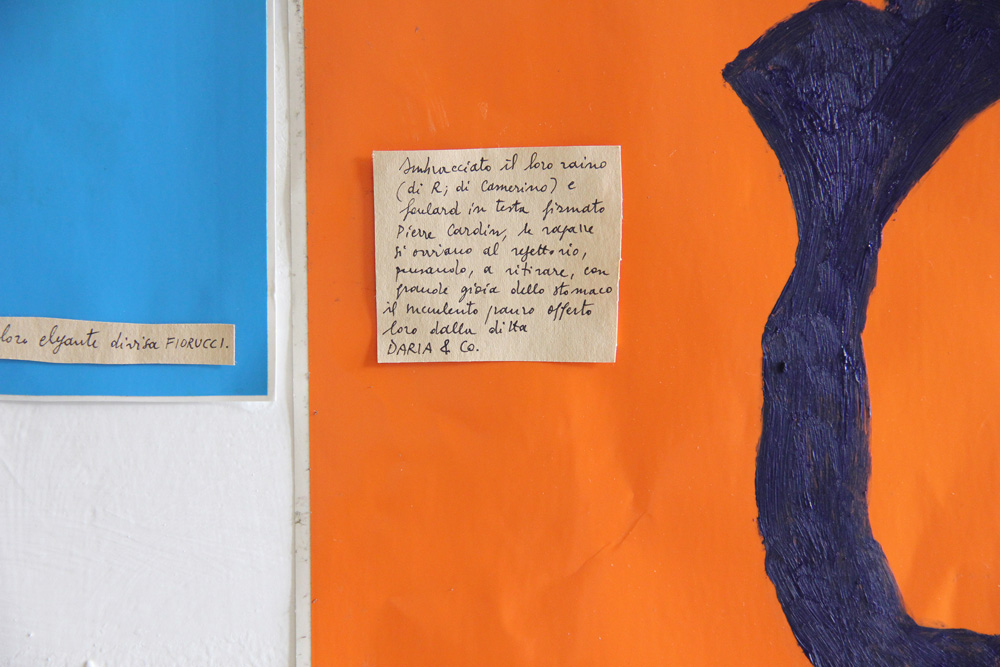 loro elegante divisa FIORUCCI.
Imbracciato il loro zaino
(di R; di Camerino) e
foulard in testa firmato
Pierre Cardin, le ragazze
si avviano al refettorio,
pensando, a ritirare, con
grande gioia dello stomaco
il succulento pranzo offerto
loro dalla ditta
DARIA & Co.